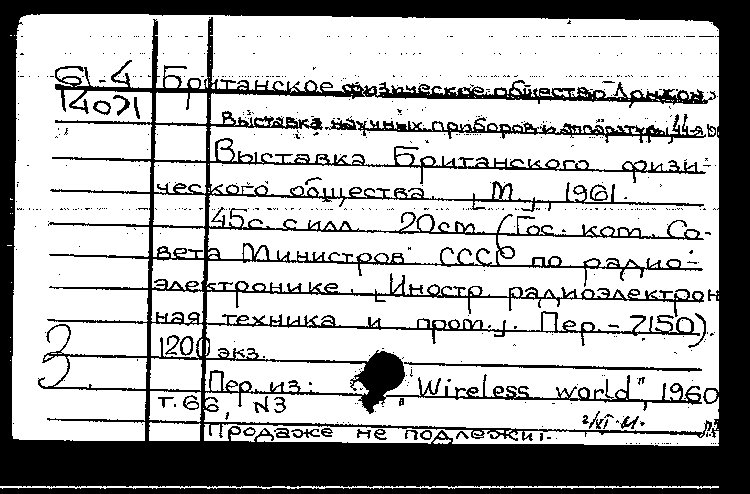 61-4 Британское физическое общество Лондон.
14071
Выставка научных приборов и аппаратуры, 44-я, 196
Выставка Британского физи-
ческого общества. [М.], 1961.
45с. с илл. 20см. (Гос. ком. Со-
вета Министров СССР по радио-
электронике. [Иностр. радиоэлектрон
ная техника и пром.]. Пер. - 7150).
1200 экз.
3
Пер. из: "Wireless world", 1960
т. 66, N3
Продаже не подлежит.